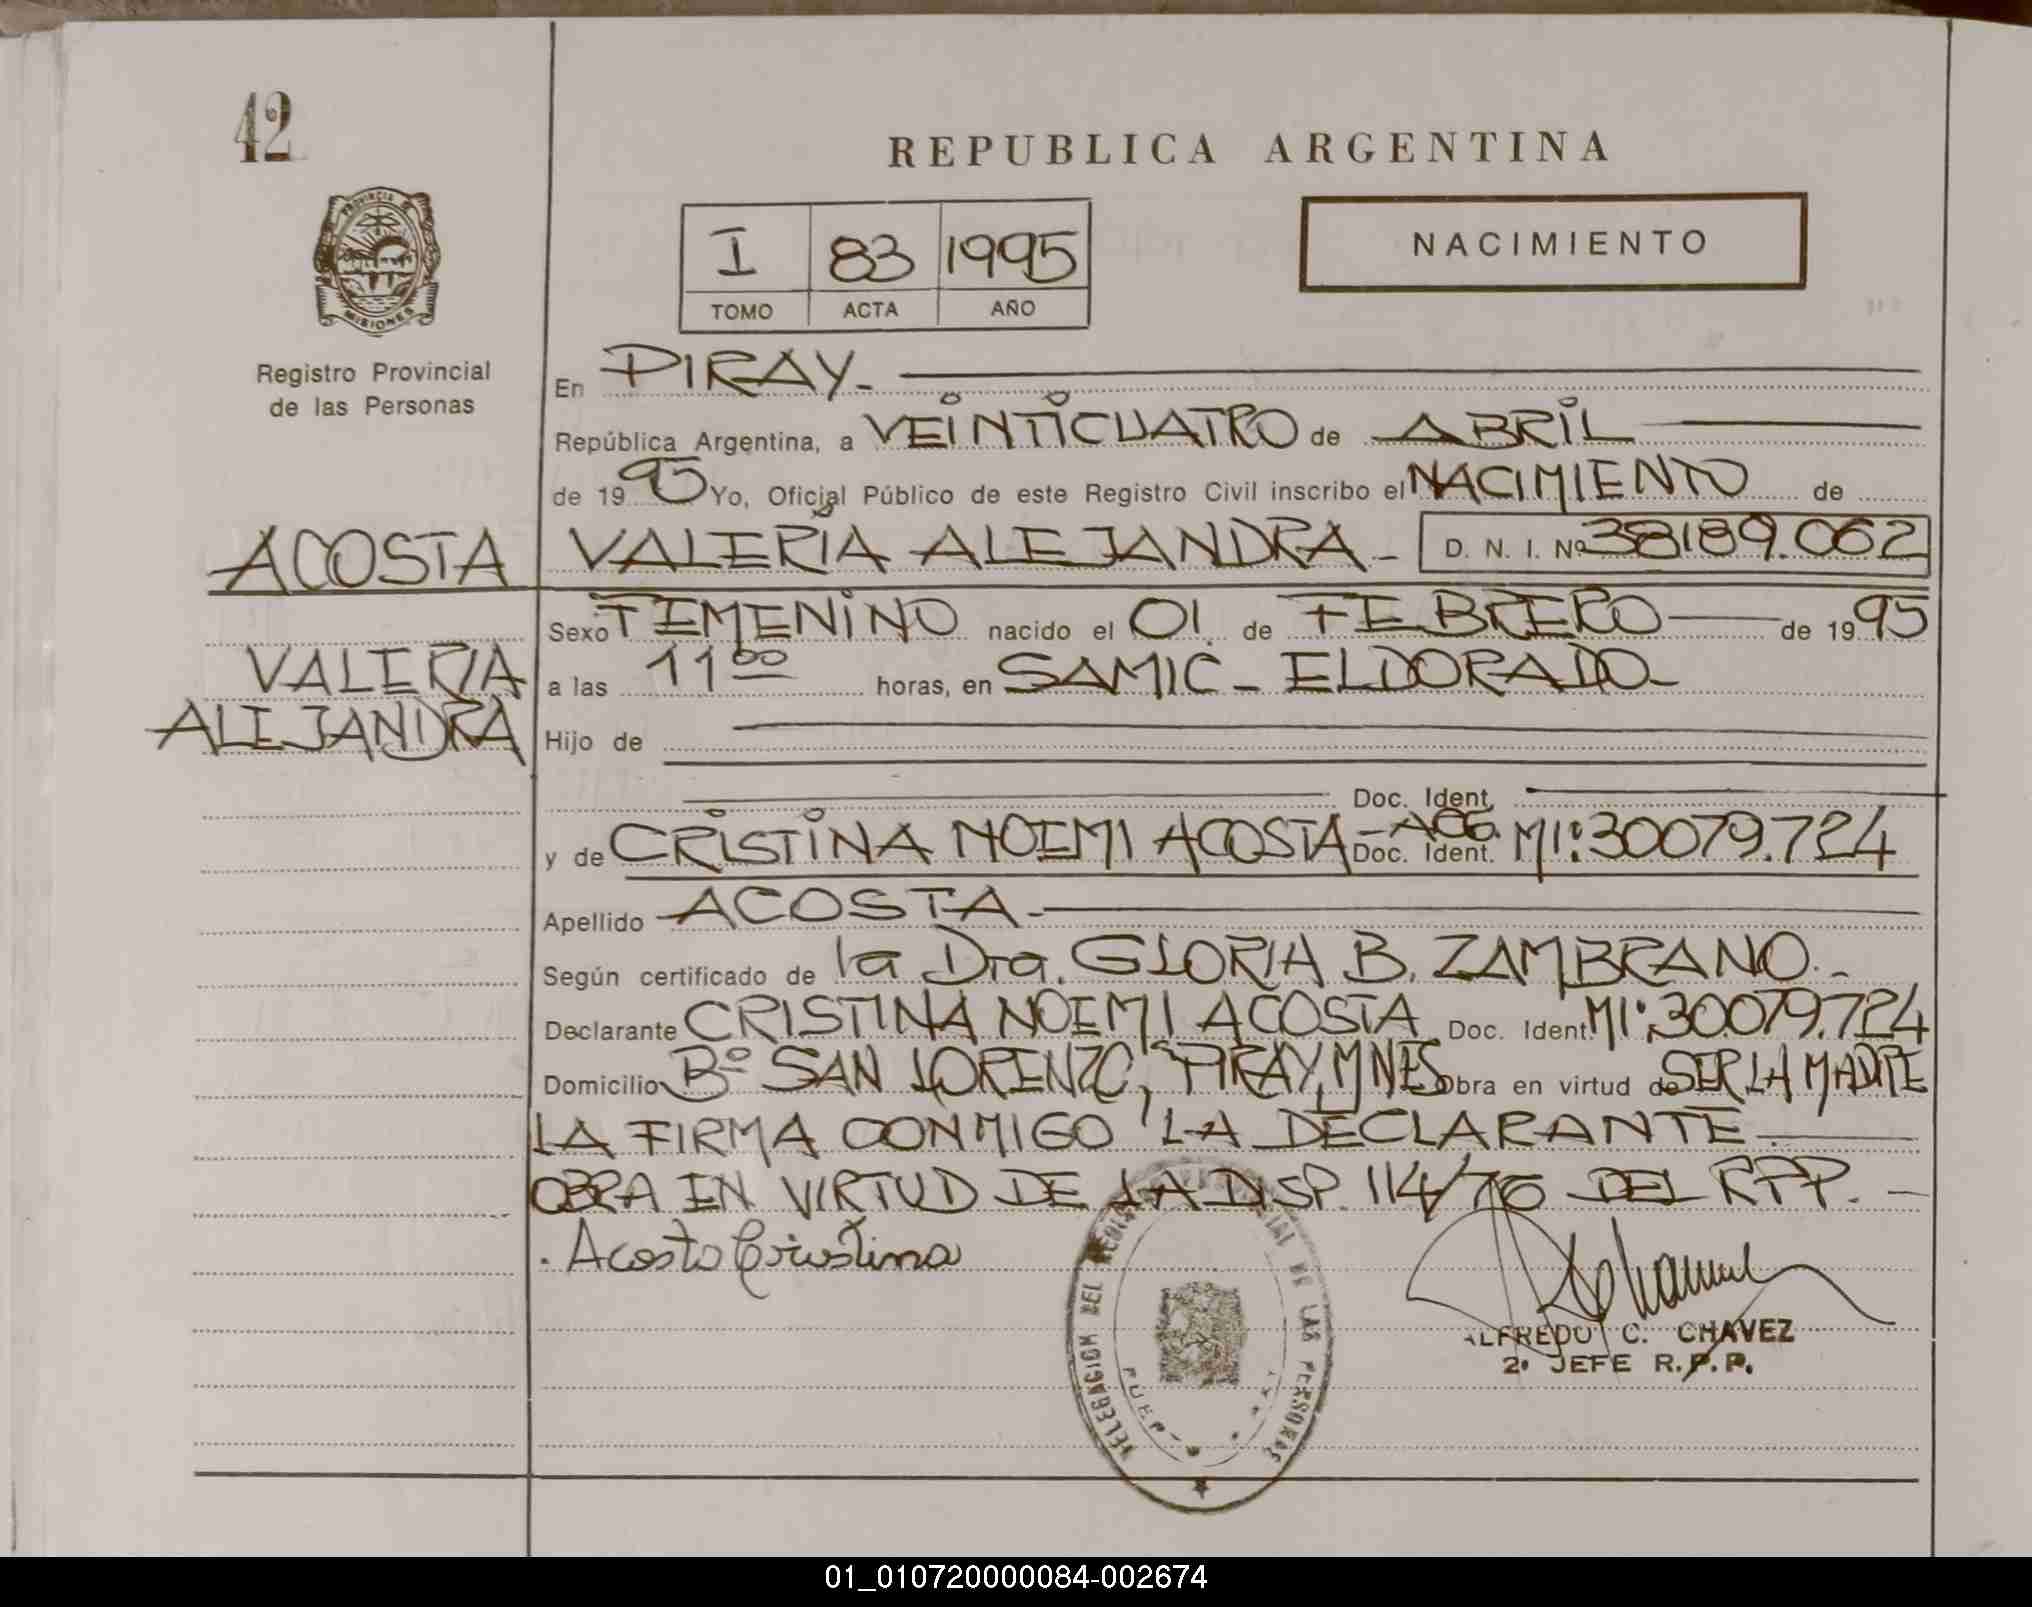 42
REPUBLICA ARGENTINA
PROVINCIA DE
MISIONES
Registro Provincial
de las Personas
I 83 1995
TOMO ACTA AÑO
NACIMIENTO
En PIRAY.-
República Argentina, a VEINTICUATRO de ABRIL
de 1995 Yo, Oficial Público de este Registro Civil inscribo el NACIMIENTO de
ACOSTA VALERIA ALEJANDRA.- D. N. I. Nº 38189.062
Sexo FEMENINO nacido el 01 de FEBRERO de 1995
VALERIA a las 11 00 horas, en SAMIC - ELDORADO-
ALEJANDRA Hijo de
Doc. Ident.
y de CRISTINA NOEMI ACOSTA Doc. Ident. MI: 30079.724
Apellido ACOSTA.-
Según certificado de la Dra. GLORIA B. ZAMBRANO.-
Declarante CRISTINA NOEMI ACOSTA Doc. Ident. MI: 30.079.724
Domicilio Bº SAN LORENZO, PIRAY, MNES obra en virtud de SER LA MADRE
LA FIRMA CONMIGO LA DECLARANTE
OBRA EN VIRTUD DE LA DISP. 114/76 DEL RPP.-
Acosta Cristina
DELEGACION DEL REGISTRO PROVINCIAL DE LAS PERSONAS
ALFREDO C. CHAVEZ
2º JEFE R.P.P.
01_010720000084-002674